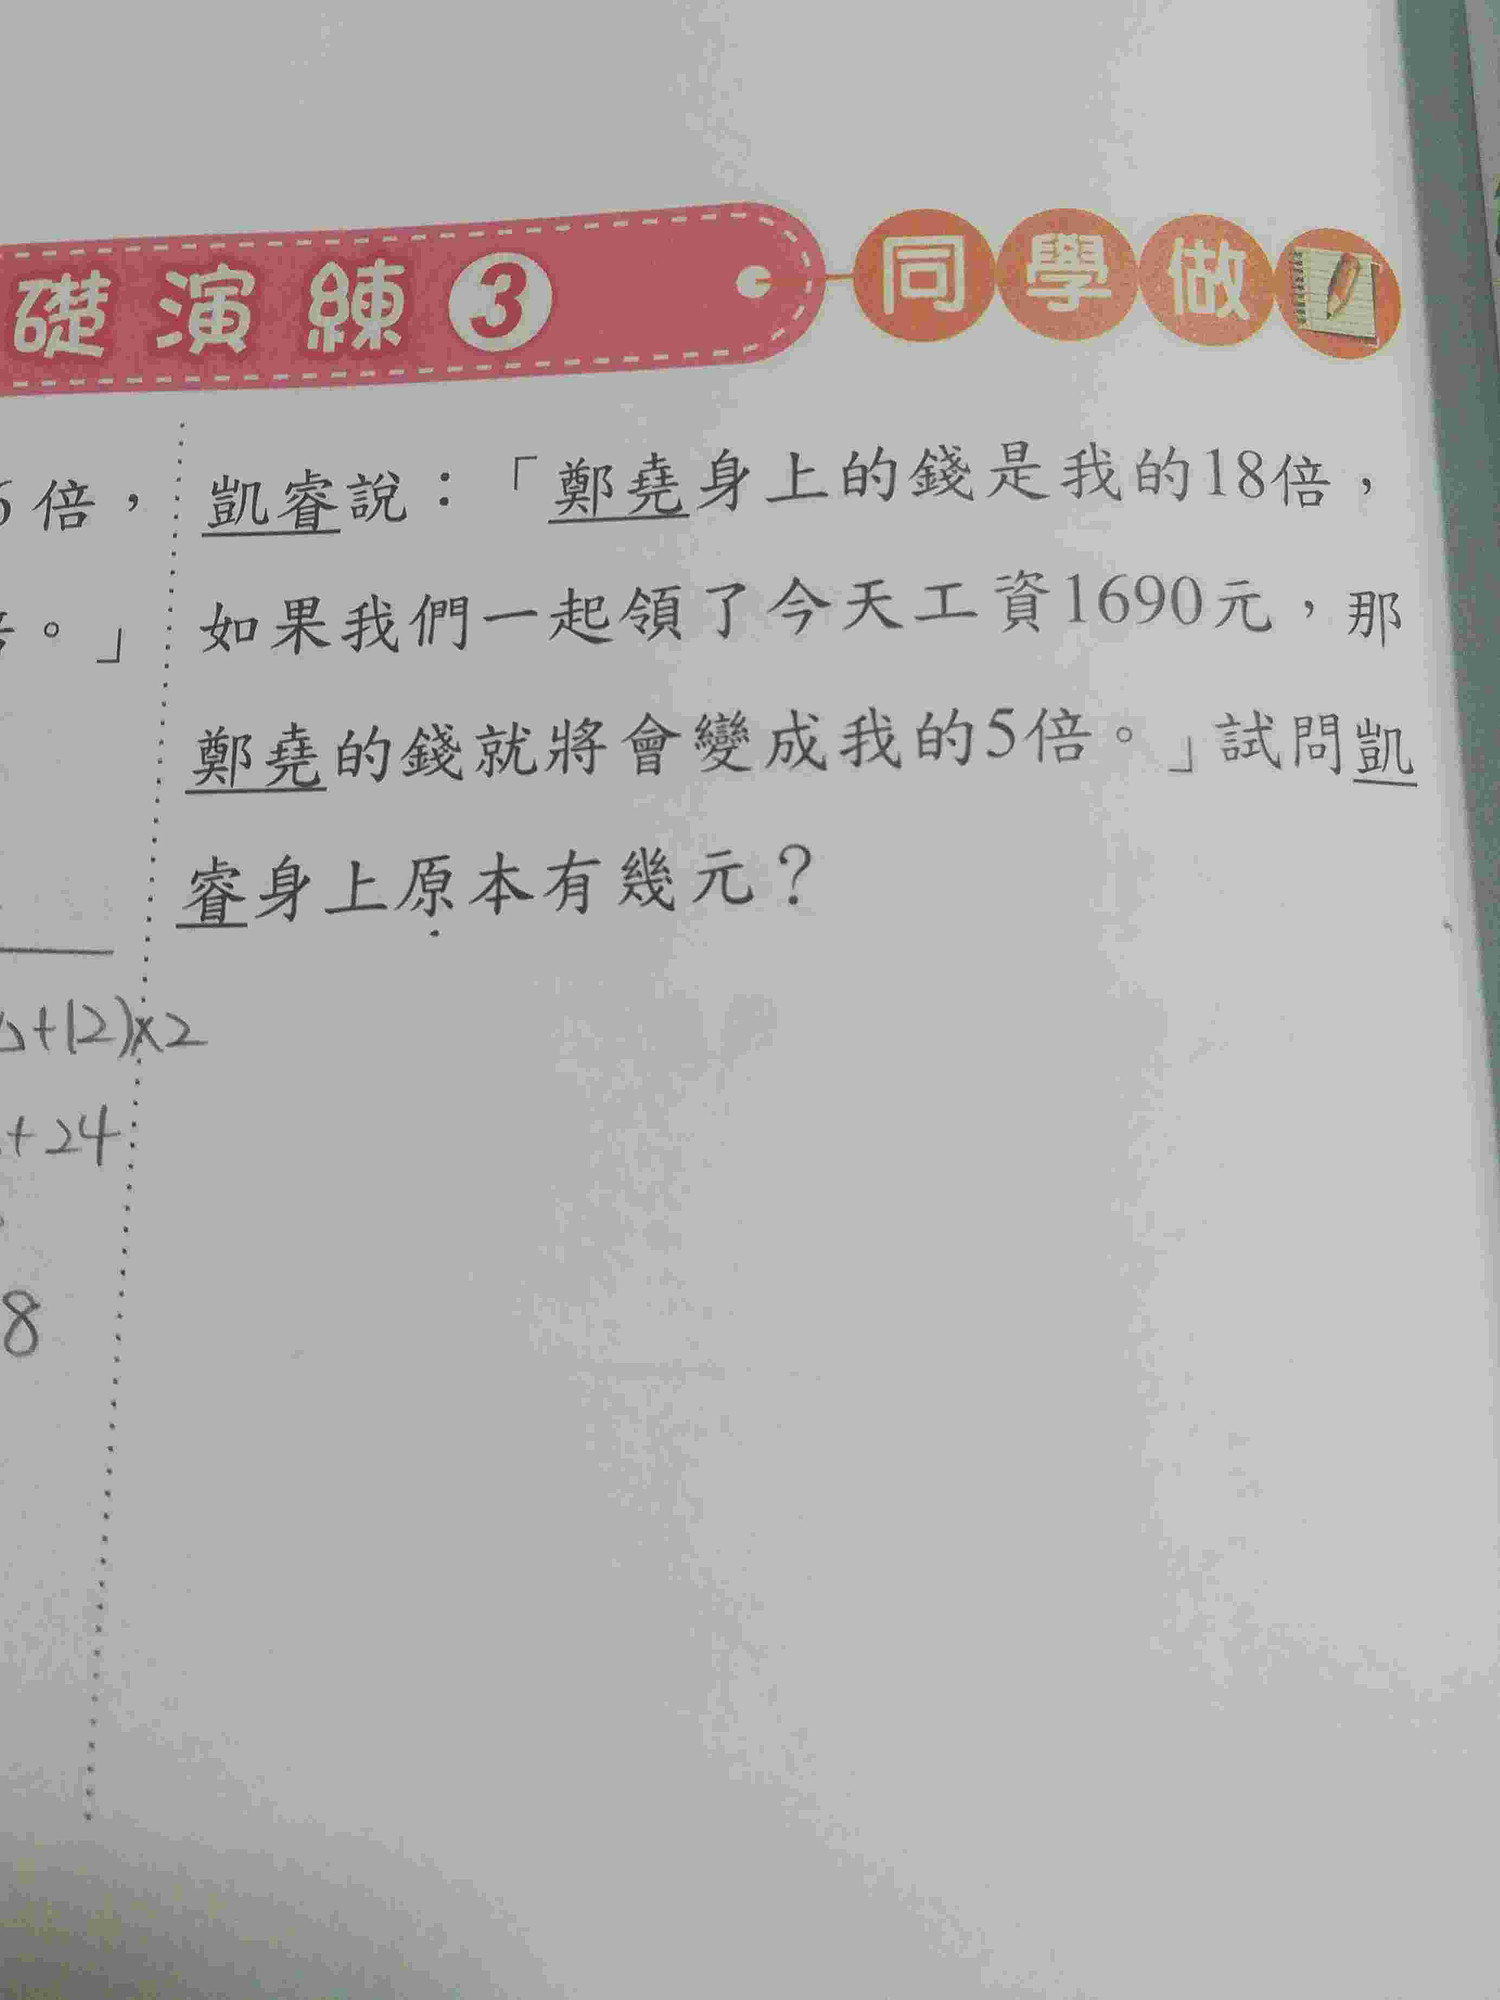 礎演練3 同學做
6倍，
凱睿說：「鄭堯身上的錢是我的18倍，
。」
如果我們一起領了今天工資1690元，那
鄭堯的錢就將會變成我的5倍。」試問凱
睿身上原本有幾元？
+12)×2
+24
8